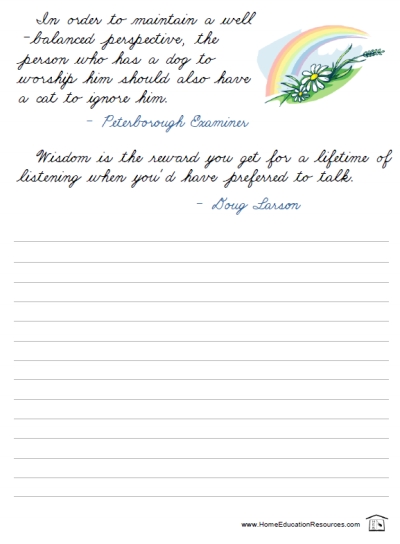 In order to maintain a well
-balanced perspective, the
person who has a dog to
worship him should also have
a cat to ignore him.
- Peterborough Examiner
Wisdom is the reward you get for a lifetime of
listening when you'd have preferred to talk.
- Doug Larson
www.HomeEducationResources.com